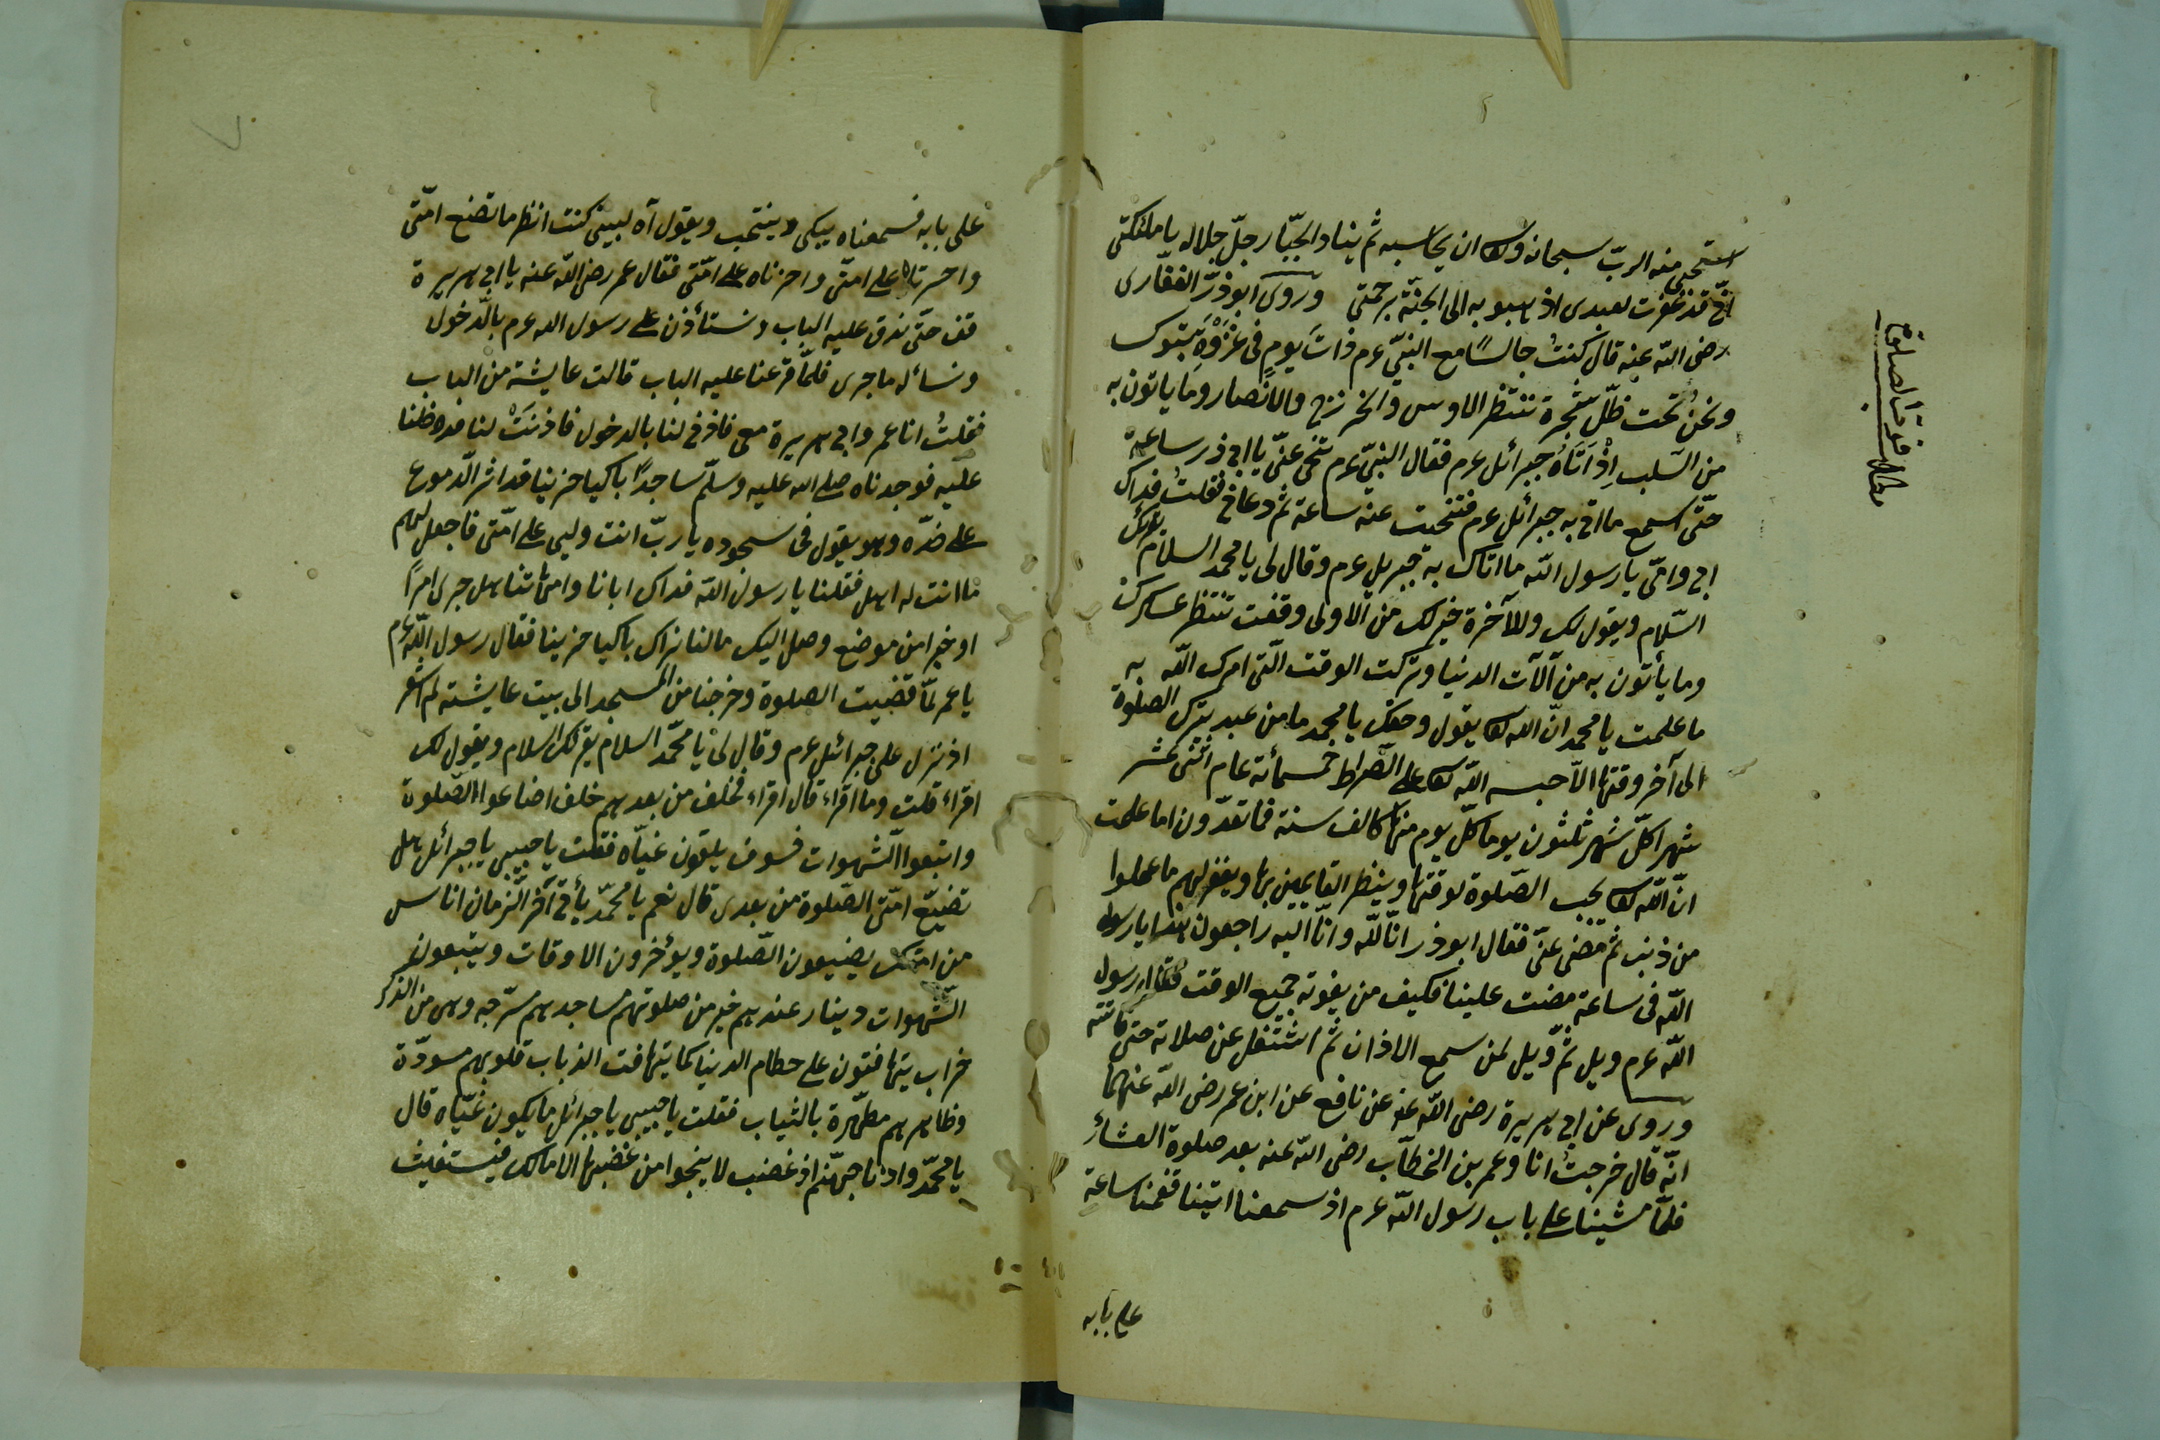 استحيى منه الربّ سبحانه وتعا ان يحاسبه ثم يناد الجبّار جلّ جلاله يا ملئكتى
انّى قد غفرت لعبدى اذهبوا به الى الجنّة برحمتى وروى ابو ذرّ الغفّارى
رضى الله عنه قال كنتُ جالسًا مع النبىّ عرم ذاتَ يومٍ فى غَزْوَةِ تبوك
ونحنُ تحت ظلّ شجرة ننتظر الاوس والخزرج والانصار وما ياتون به
من السّلب اِذْ اَتَاهُ جبرائل عرم فقال النبىّ عرم تنحى عنّى يا ابى ذر ساعة
حتّى اسمع ما اتى به جبرائل عرم فتنحت عنه ساعة ثم دعانى فقلتُ فداك
ابى وامّى يا رسول الله ما اتاك به جبريل عرم وقال لى يا محمد السلام يقرئك
السّلام ويقول لك وللآخرة خير لك من الاولى وقفت تنتظر عسكرك
وما يأتون به من آلآت الدنيا وتركت الوقت الّتى امرك الله به
ما علمت يا محمد انّ الله تعا يقول وحقك يا محمد ما من عبد يترك الصلوة
الى آخر وقتها الاّ حبسه الله تعا على الصّراط خمسمائة عام اثنى عشر
شهرا كلّ شهر ثلثون يوما كلّ يوم منها كالف سنة مما تعدّون اما علمت
انّ الله تعا يحب الصّلوة لوقتها وينظر القايمين بها ويغفر لهم ما عملوا
من ذنب ثم مضى عنّى فقال ابو ذر انّا للّه وانّا اليه راجعون هذا يا رسول
الله فى ساعة مضت علينا فكيف من يفوته جميع الوقت فقال رسول
الله عرم ويل ثمّ ويل لمن سمع الاذان ثم اشتغل عن صلاته حتى فاتته
وروى عن ابى هريرة رضى الله عنه عن نافع عن ابن عمر رضى الله عنهما
انّه قال خرجتُ انا وعمر بن الخطّاب رضى الله عنه بعد صلوة العشاء
فلمّا مشينا على باب رسول الله عرم اذ سمعنا انينا فقمنا ساعة
على بابه
مطلب فوت الصلوة
على بابه فسمعناه يبكى وينتحب ويقول آه لبينى كنت انظر ما تصنع امّتى
واحسرتاه على امتّى واحزناه على امّتى فقال عمر رضى الله عنه يا ابى هريرة
قف حتّى ندق عليه الباب ونستأذن على رسول الله عرم بالدّخول
ونسأله ما جرى فلمّا قرعنا عليه الباب قالت عايشة من الباب
فقلتُ انا عمر وابى هريرة معى فاذنى لنا بالدخول فاذنَتْ لنا فدخلنا
عليه فوجدناه صلى الله عليه وسلّم ساجدًا باكيا حزينا قد اثر الدّموع
على خدّه وهو يقول فى سجوده يا ربّ انت وليى على امّتى فاجعل لهم
ما انت له اهل فقلنا يا رسول الله فداك ابانا وامّهاتنا هل جرى امرًا
او خبرا من موضع وصل اليك ما لنا نراك باكيا حزينا فقال رسول الله عرم
يا عمر لمّا قضيت الصلوة وخرجنا من المسجد الى بيت عايشة لم اشعر
اذ نزل على جبرائل عرم وقال لى يا محمّد السلام يقرئك السلام ويقول لك
اقراء قلت وما اقراء قال اقراء فخلف من بعدهم خلف اضاعوا الصّلوة
واتبعوا الشهوات فسوف يلقون غيّاه فقلت يا حبيبى يا جبرائل هل
تضيّع امّتى الصّلوة من بعدى قال نعم يا محمّد يأتى آخر الزمان اناس
من امتك يضيعون الصّلوة ويؤخرون الاوقات ويتبعون
الشّهوات دينار عندهم خير من صلوتهم مساجدهم مسرّجه وهى من الذكر
خراب يتهافتون على حطام الدنيا كما يتهافت الذباب قلوبهم مسودّة
وظاهرهم مطهّرة بالثياب فقلت يا حبيبى يا جبرائل ما يكون غيّاه قال
يا محمّد وادنا جهنّم اذ غضب لا ينجوا من غضبها الا مالك فيستغيث